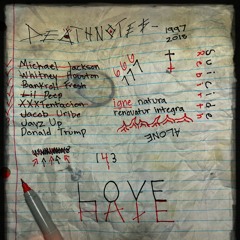 DEATHNOTE
1997
2018
Michael Jackson
Whitney Houston
Bankroll Fresh
Lil Peep
XXXTentacion
Jacob Uribe
Jayz Up
Donald Trump
666
777
Suicide
Rebirth
Igne natura
renovatur integra
ALONE
143
LOVE
HATE